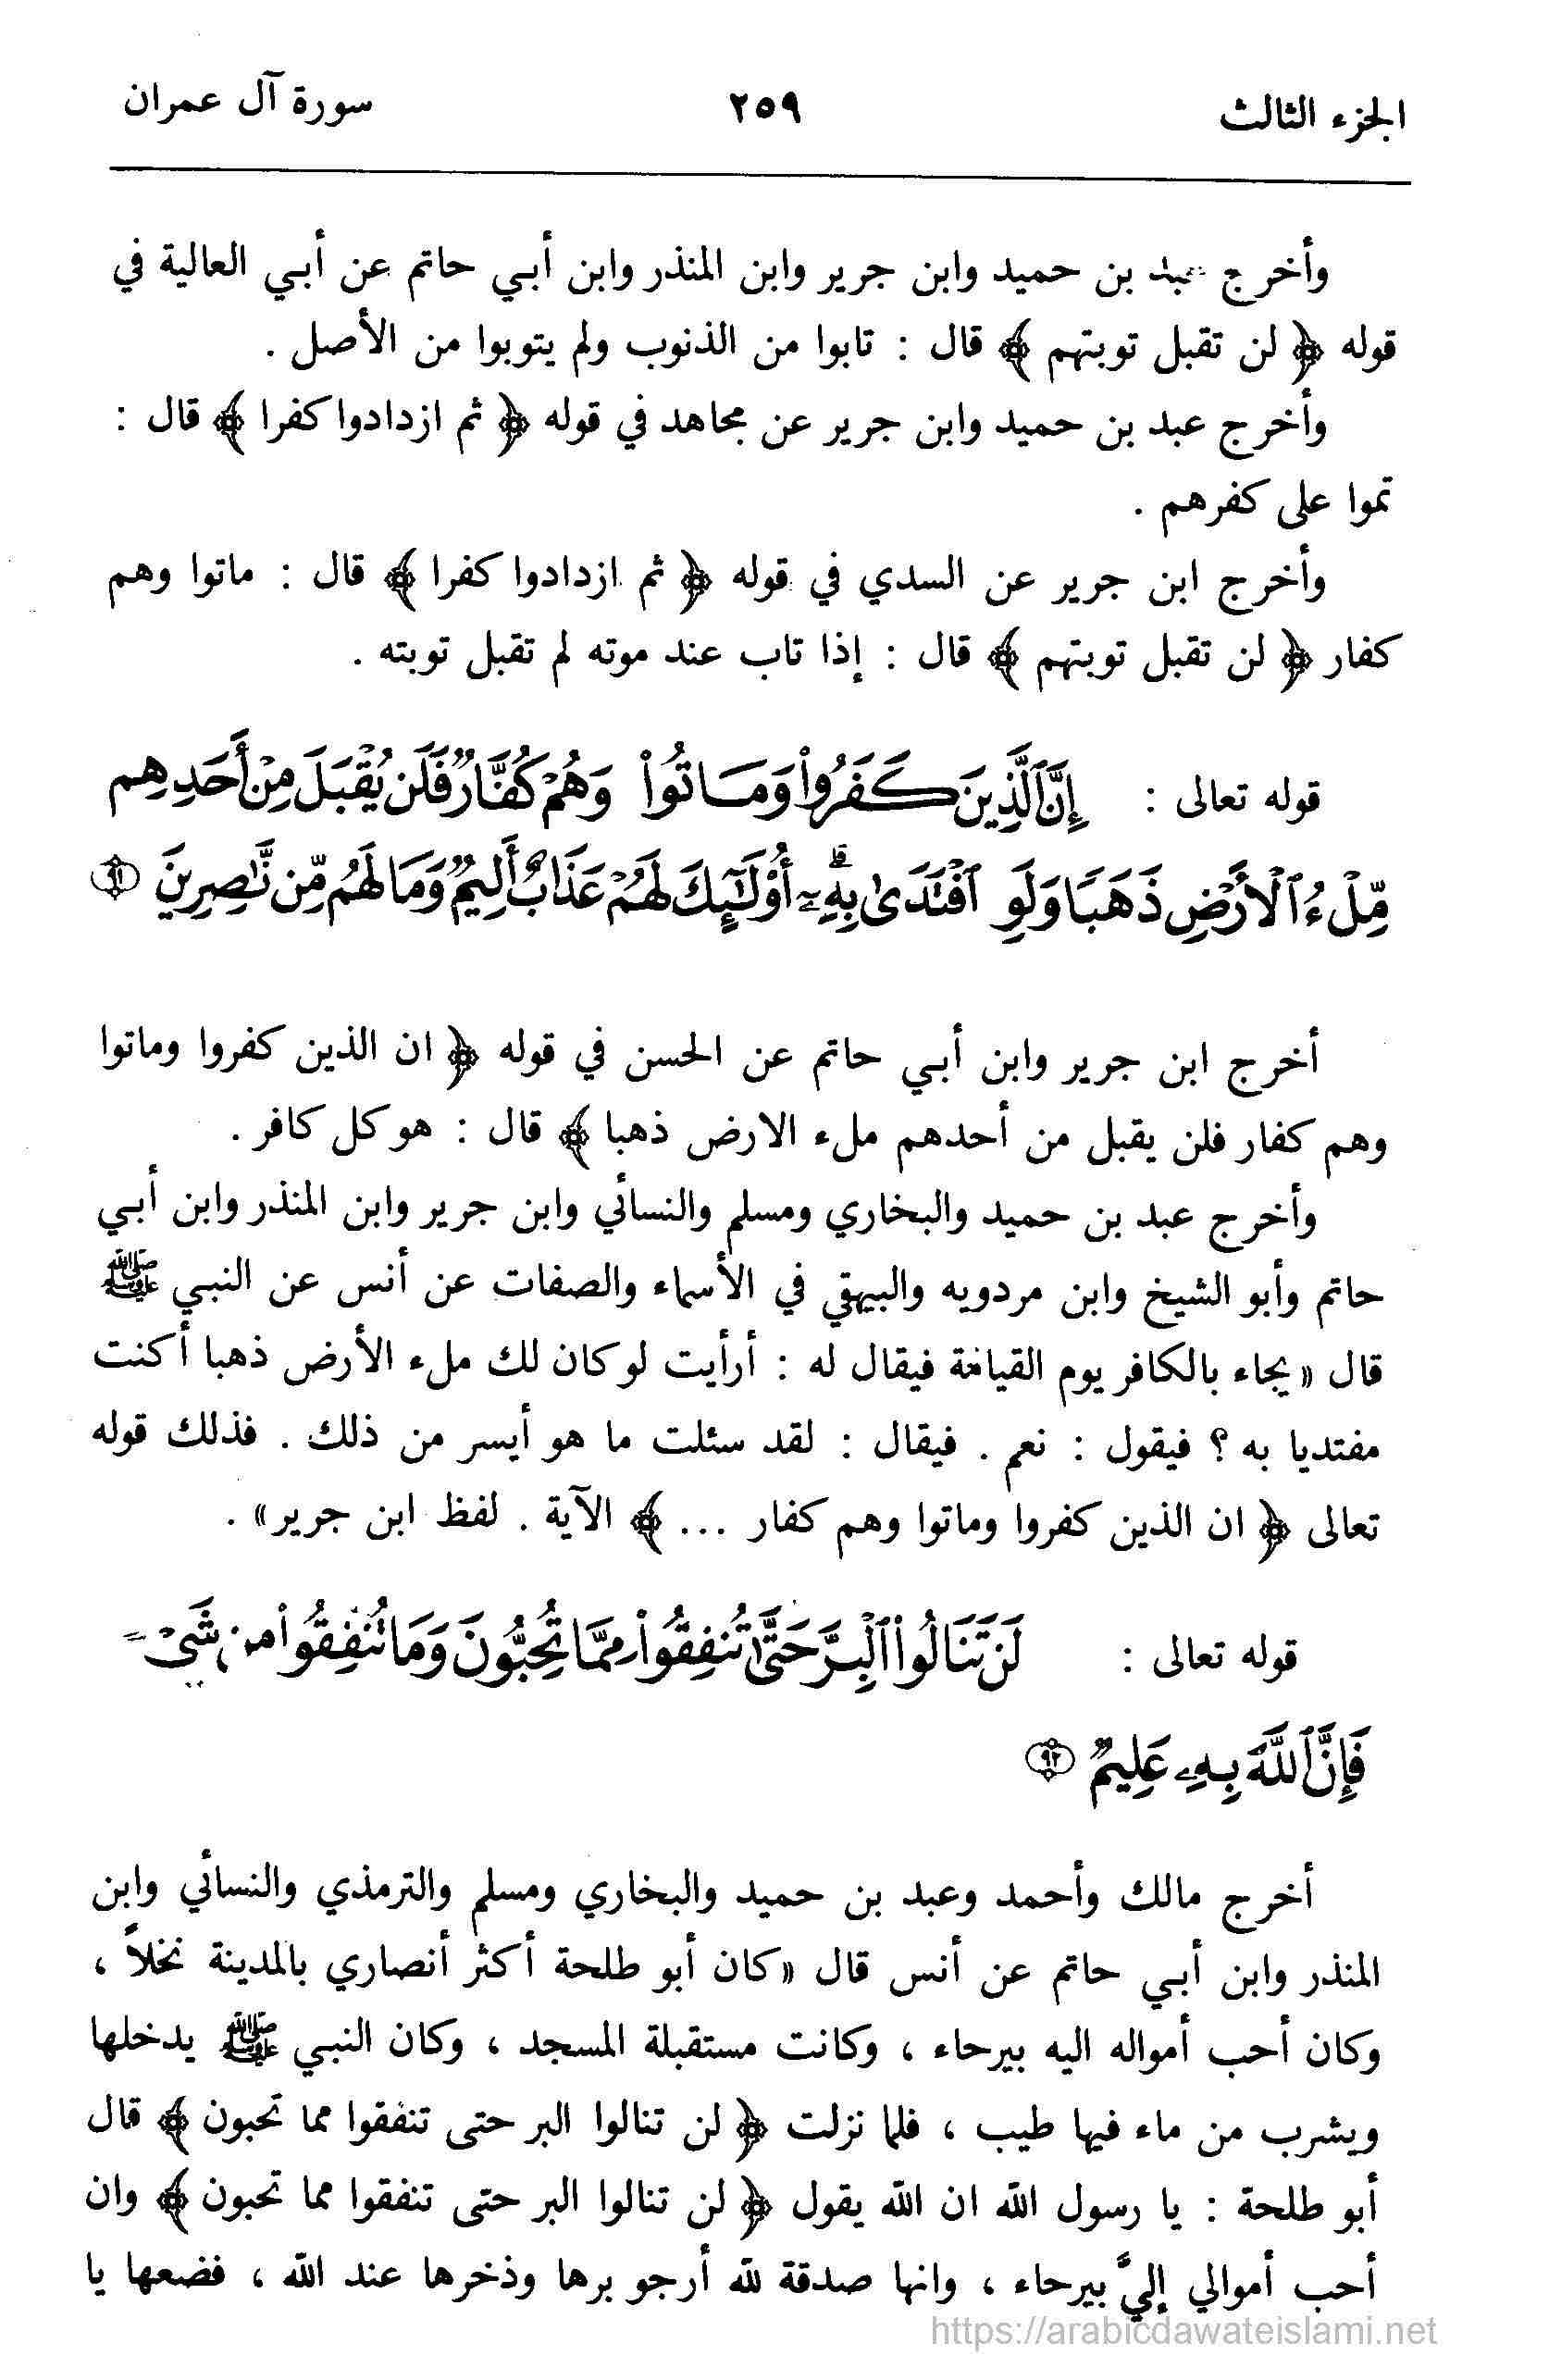 الجزء الثالث ٢٥٩ سورة آل عمران
وأخرج عبد بن حميد وابن جرير وابن المنذر وابن أبي حاتم عن أبي العالية في
قوله ﴿ لن تقبل توبتهم ﴾ قال : تابوا من الذنوب ولم يتوبوا من الأصل .
وأخرج عبد بن حميد وابن جرير عن مجاهد في قوله ﴿ ثم ازدادوا كفرا ﴾ قال :
تموا على كفرهم .
وأخرج ابن جرير عن السدي في قوله ﴿ ثم ازدادوا كفرا ﴾ قال : ماتوا وهم
كفار ﴿ لن تقبل توبتهم ﴾ قال : إذا تاب عند موته لم تقبل توبته .
قوله تعالى : إِنَّ ٱلَّذِينَ كَفَرُوا۟ وَمَاتُوا۟ وَهُمْ كُفَّارٌ فَلَن يُقْبَلَ مِنْ أَحَدِهِم
مِّلْءُ ٱلْأَرْضِ ذَهَبًا وَلَوِ ٱفْتَدَىٰ بِهِۦٓ ۗ أُو۟لَـٰٓئِكَ لَهُمْ عَذَابٌ أَلِيمٌ وَمَا لَهُم مِّن نَّـٰصِرِينَ ٩١
أخرج ابن جرير وابن أبي حاتم عن الحسن في قوله ﴿ ان الذين كفروا وماتوا
وهم كفار فلن يقبل من أحدهم ملء الارض ذهبا ﴾ قال : هو كل كافر .
وأخرج عبد بن حميد والبخاري ومسلم والنسائي وابن جرير وابن المنذر وابن أبي
حاتم وأبو الشيخ وابن مردويه والبيهقي في الأسماء والصفات عن أنس عن النبي ﷺ
قال «يجاء بالكافر يوم القيامة فيقال له : أرأيت لو كان لك ملء الأرض ذهبا أكنت
مفتديا به ؟ فيقول : نعم . فيقال : لقد سئلت ما هو أيسر من ذلك . فذلك قوله
تعالى ﴿ ان الذين كفروا وماتوا وهم كفار ... ﴾ الآية . لفظ ابن جرير» .
قوله تعالى : لَن تَنَالُوا۟ ٱلْبِرَّ حَتَّىٰ تُنفِقُوا۟ مِمَّا تُحِبُّونَ وَمَا تُنفِقُوا۟ مِن شَىْءٍ
فَإِنَّ ٱللَّهَ بِهِۦ عَلِيمٌ ٩٢
أخرج مالك وأحمد وعبد بن حميد والبخاري ومسلم والترمذي والنسائي وابن
المنذر وابن أبي حاتم عن أنس قال «كان أبو طلحة أكثر أنصاري بالمدينة نخلاً ،
وكان أحب أمواله اليه بيرحاء ، وكانت مستقبلة المسجد ، وكان النبي ﷺ يدخلها
ويشرب من ماء فيها طيب ، فلما نزلت ﴿ لن تنالوا البر حتى تنفقوا مما تحبون ﴾ قال
أبو طلحة : يا رسول الله ان الله يقول ﴿ لن تنالوا البر حتى تنفقوا مما تحبون ﴾ وان
أحب أموالي إليَّ بيرحاء ، وانها صدقة لله أرجو برها وذخرها عند الله ، فضعها يا
https://arabicdawateislami.net